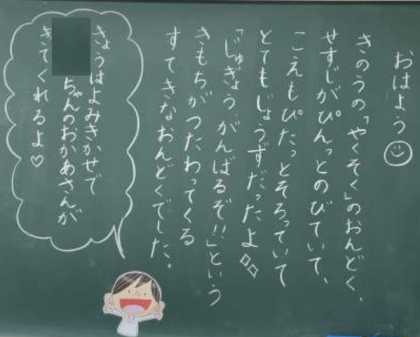 おはよう
きのうの「やくそく」のおんどく、
せすじがぴんっとのびていて、
こえもぴたっとそろっていて
とてもじょうずだったよ
「じゅぎょう、がんばるぞ!!」という
きもちがつたわってくる
すてきなおんどくでした。
きょうはよみきかせで
ちゃんのおかあさんが
きてくれるよ♡